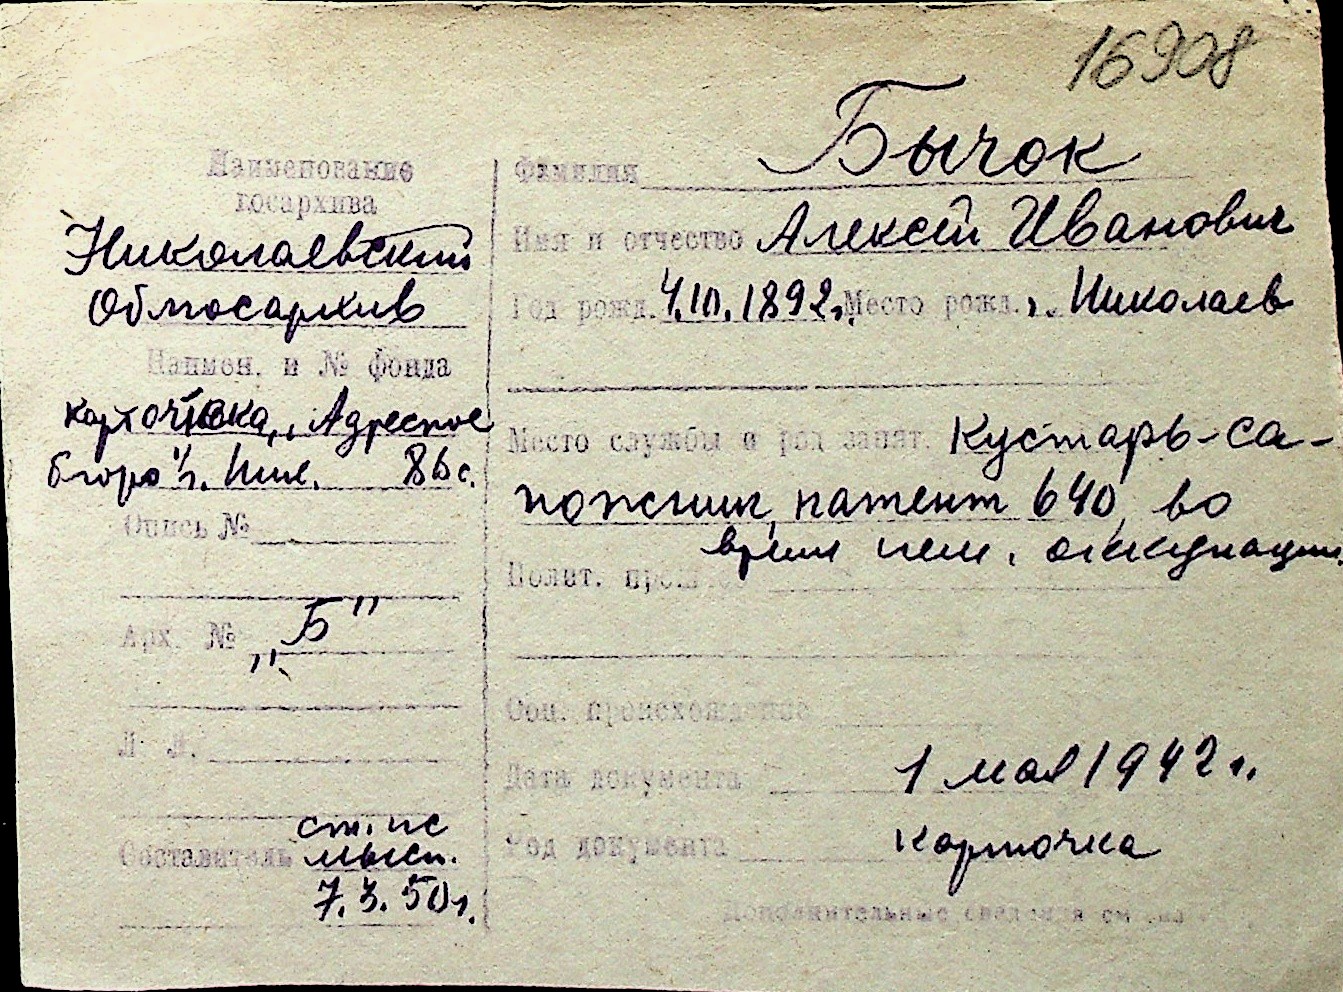 16908
Наименование
госархива
Николаевский
Облгосархив
Наимен. и № фонда
картотека „Адресное
бюро" г. Ник. 86 с.
Опись №
Арх. №
„Б"
Л. Л.
Составитель
7.3.50г.
Фамилия Бычок
Имя и отчество Алексей Иванович
Год рожд. 4.10.1892г. Место рожд. г. Николаев
Место службы и род занят. Кустарь-са-
пожник, патент 640, во
время нем. оккупации.
Полит. прошлое
Соц. происхождение
Дата документа 1 мая 1942 г.
Род документа карточка
Дополнительные сведения см. на